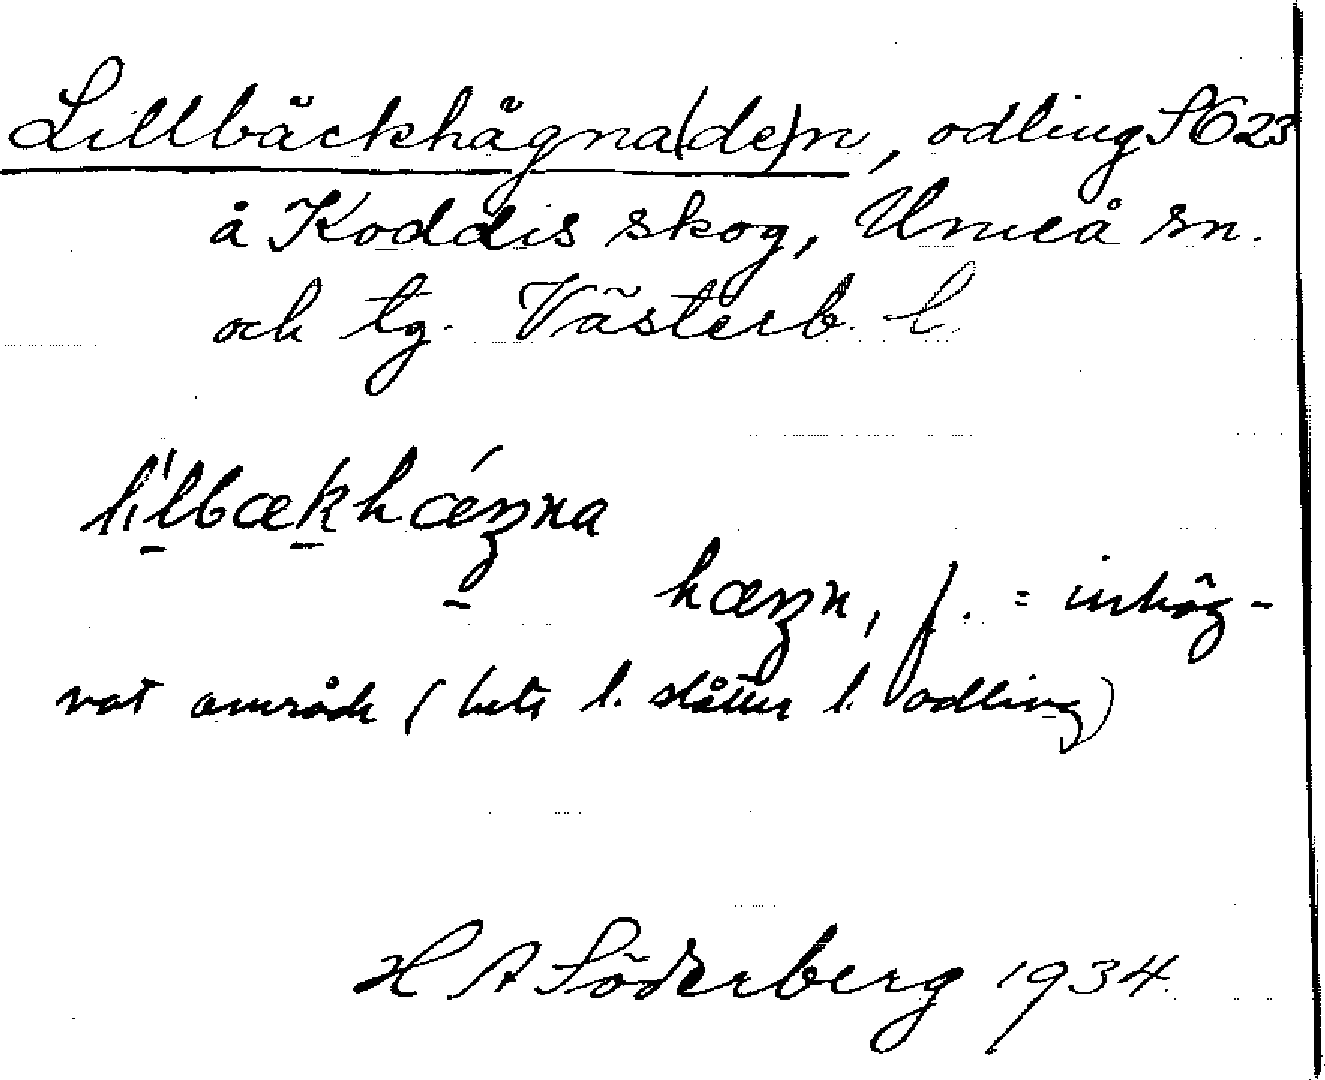 Lillbäckhägna(de)n, odling S623
å Koddis skog, Umeå sn.
och tg. Västerb. l.
li̱lbæḵhǽŋna
hæŋn, f. = inhäg-
nat område (bete l. slåtter l. odling)
H A Söderberg 1934